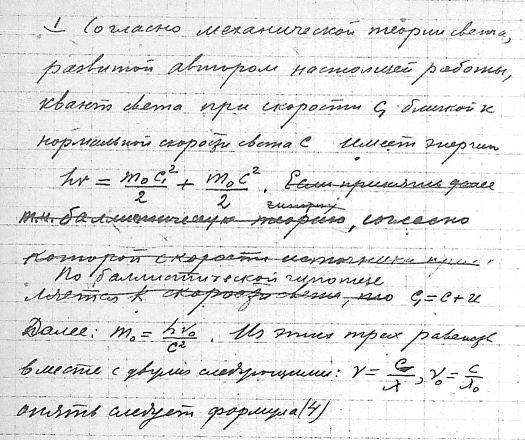 1 Согласно механической теории света,
развитой автором настоящей работы,
квант света при скорости C₁ близкой к
нормальной скорости света C имеет энергию
hν = m₀C₁²/2 + m₀C²/2. Если принять далее
гипотезу
т.н. баллистическую теорию, согласно
которой скорость источника прив.
По баллистической гипотезе
ляется к скорости света, то C₁ = C + u
Далее: m₀ = hν₀/C². Из этих трех равенств
вместе с двумя следующими: ν = C/λ, ν₀ = C/λ₀
опять следует формула (4)